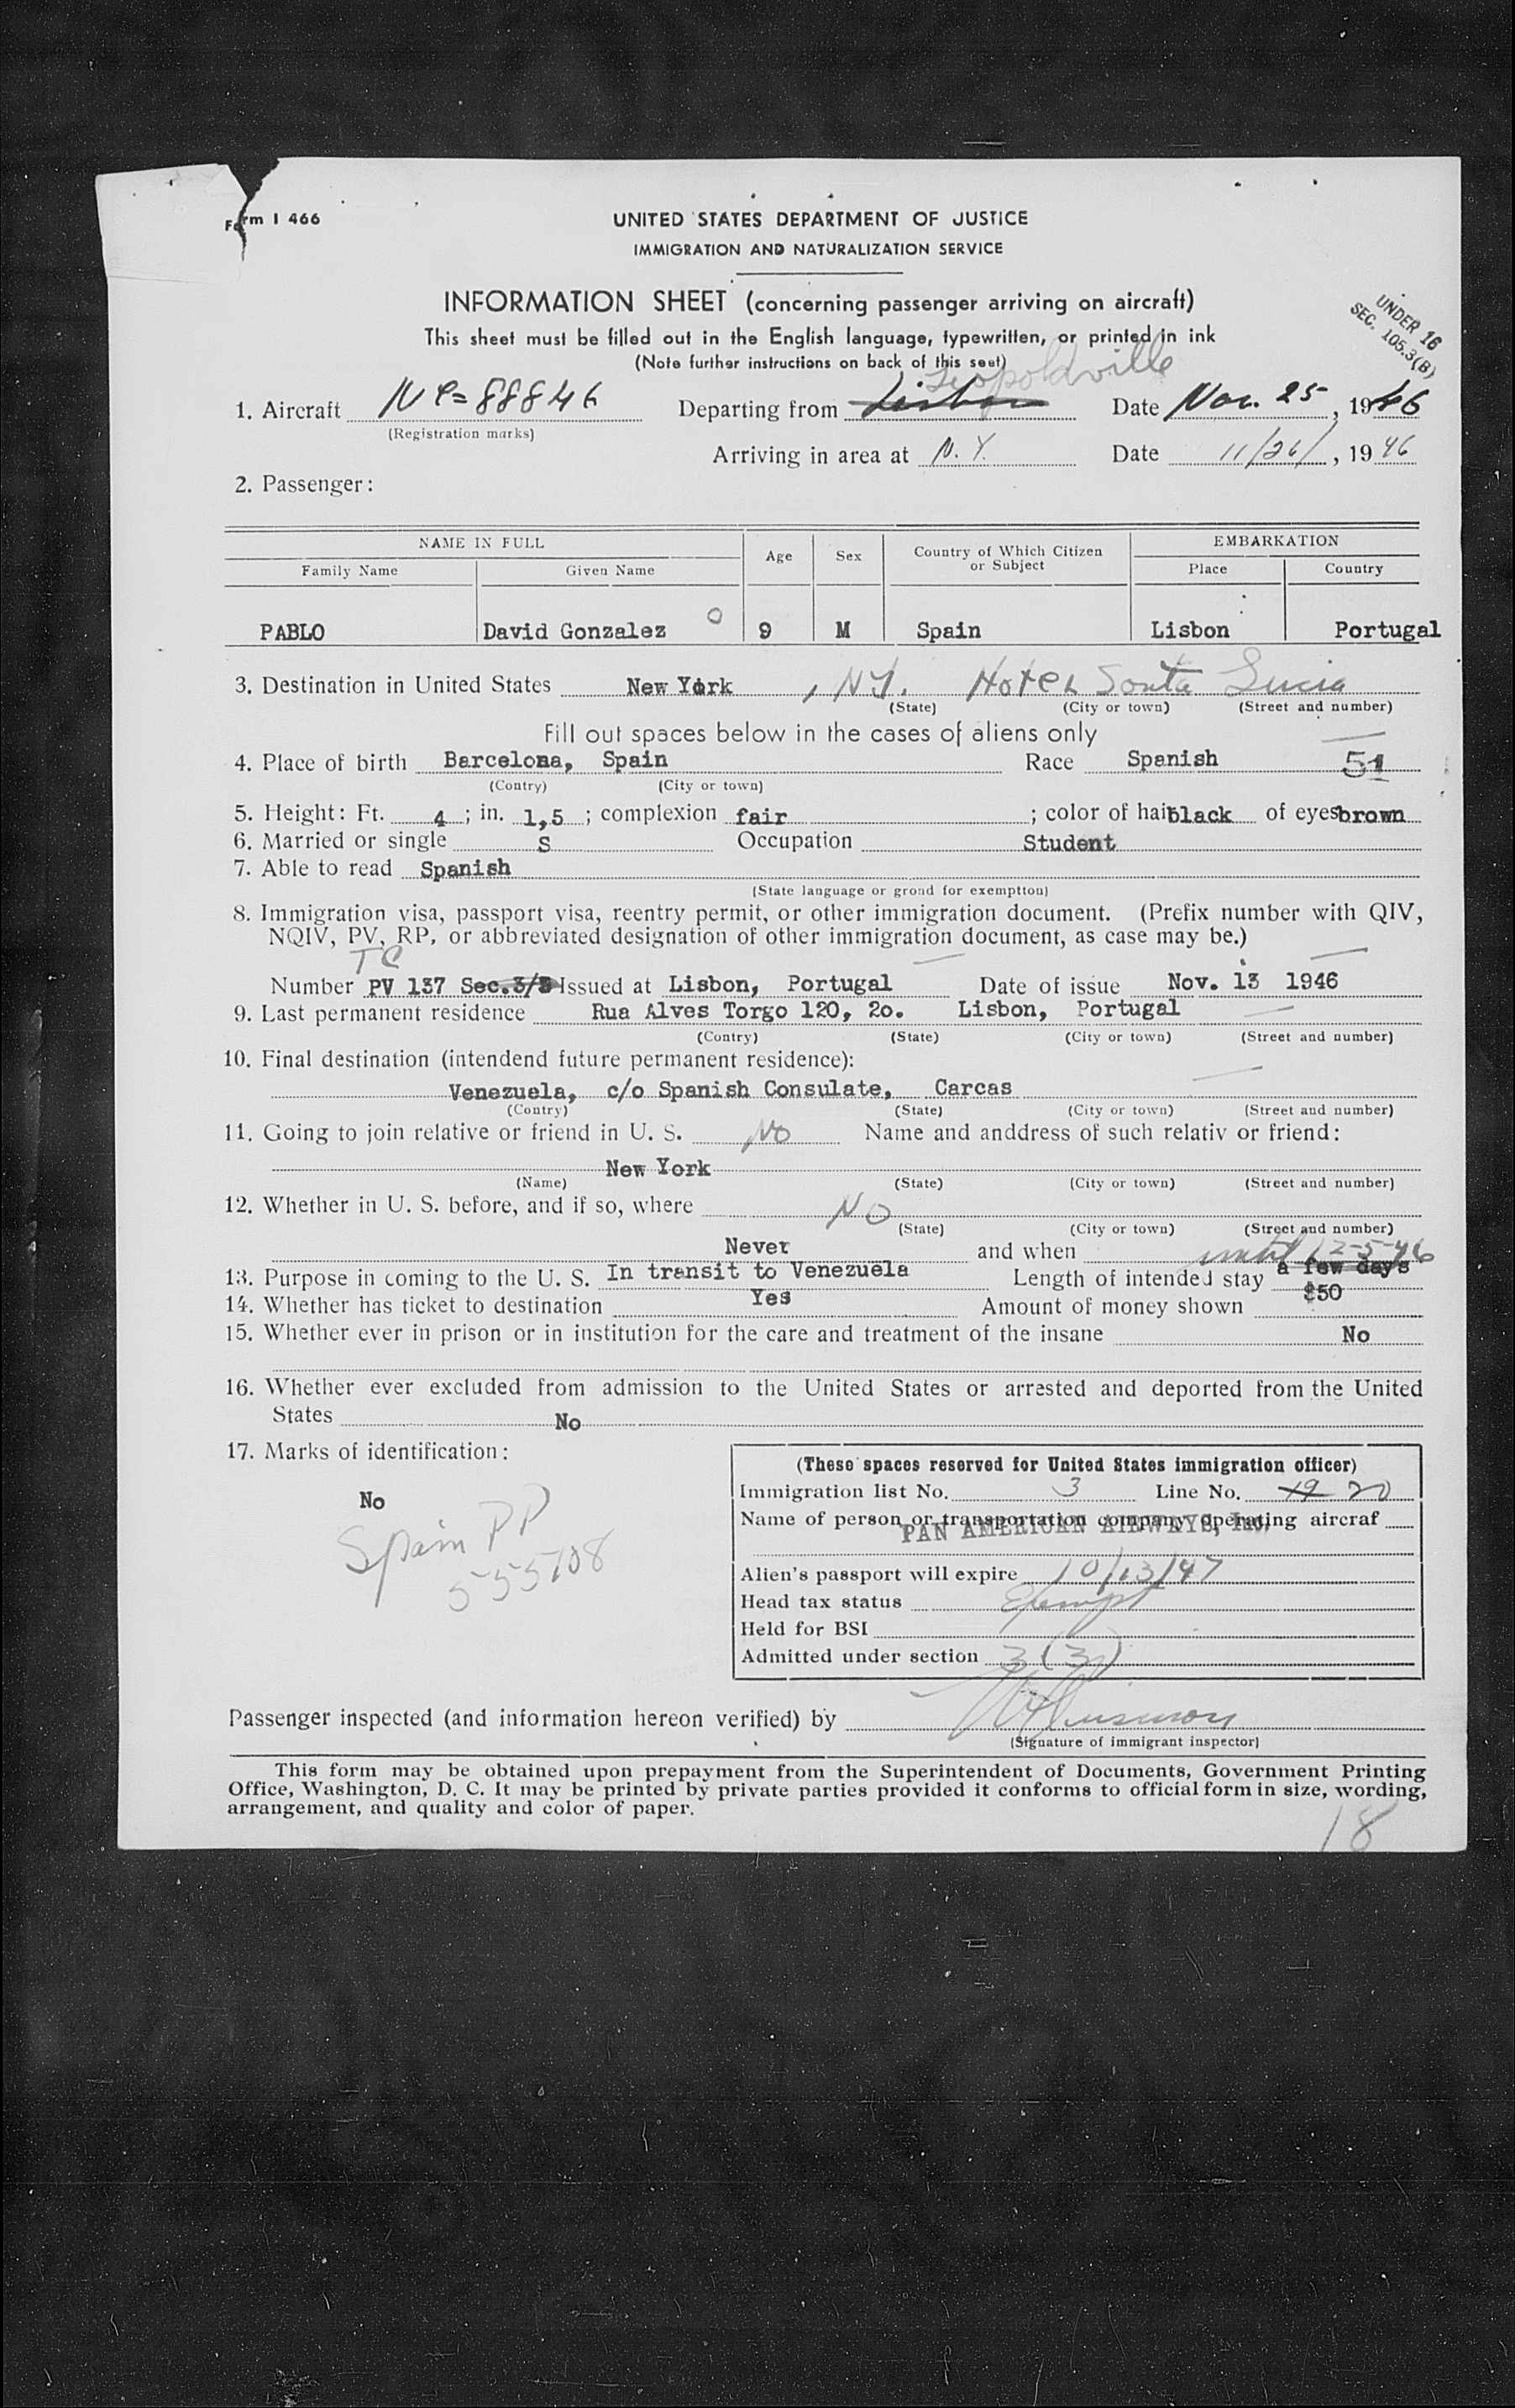 Form I 466
UNITED STATES DEPARTMENT OF JUSTICE
IMMIGRATION AND NATURALIZATION SERVICE
INFORMATION SHEET (concerning passenger arriving on aircraft)
UNDER 16
SEC. 105.3(B)
This sheet must be filled out in the English language, typewritten, or printed in ink
(Note further instructions on back of this seet)
Leopoldville
1. Aircraft NC=88846 Departing from Lisbon Date Nov. 25, 1946
(Registration marks)
Arriving in area at N.Y. Date 11/26/, 1946
2. Passenger:
NAME IN FULL Age Sex Country of Which Citizen or Subject EMBARKATION
Family Name Given Name Place Country
PABLO David Gonzalez 9 M Spain Lisbon Portugal
3. Destination in United States New York, NY. Hotel Santa Lucia
(State) (City or town) (Street and number)
Fill out spaces below in the cases of aliens only
4. Place of birth Barcelona, Spain Race Spanish 51
(Contry) (City or town)
5. Height: Ft. 4 ; in. 1,5 ; complexion fair ; color of hair black of eyes brown
6. Married or single S Occupation Student
7. Able to read Spanish
(State language or grond for exemption)
8. Immigration visa, passport visa, reentry permit, or other immigration document. (Prefix number with QIV,
NQIV, PV, RP, or abbreviated designation of other immigration document, as case may be.)
TC
Number PV 137 Sec.3/3 Issued at Lisbon, Portugal Date of issue Nov. 13 1946
9. Last permanent residence Rua Alves Torgo 120, 2o. Lisbon, Portugal
(Contry) (State) (City or town) (Street and number)
10. Final destination (intendend future permanent residence):
Venezuela, c/o Spanish Consulate, Carcas
(Contry) (State) (City or town) (Street and number)
11. Going to join relative or friend in U. S. NO Name and anddress of such relativ or friend:
New York
(Name) (State) (City or town) (Street and number)
12. Whether in U. S. before, and if so, where NO
(State) (City or town) (Street and number)
Never and when until 12-5-46
13. Purpose in coming to the U. S. In transit to Venezuela Length of intended stay a few days
14. Whether has ticket to destination Yes Amount of money shown $50
15. Whether ever in prison or in institution for the care and treatment of the insane No
16. Whether ever excluded from admission to the United States or arrested and deported from the United
States No
17. Marks of identification:
No
Spain PP
555108
(These spaces reserved for United States immigration officer)
Immigration list No. 3 Line No. 19 20
Name of person or transportation company operating aircraf
PAN AMERICAN AIRWAYS, Inc.
Alien's passport will expire 10/13/47
Head tax status Exempt
Held for BSI
Admitted under section 3 (3)
Passenger inspected (and information hereon verified) by
(Signature of immigrant inspector)
This form may be obtained upon prepayment from the Superintendent of Documents, Government Printing
Office, Washington, D. C. It may be printed by private parties provided it conforms to official form in size, wording,
arrangement, and quality and color of paper.
18